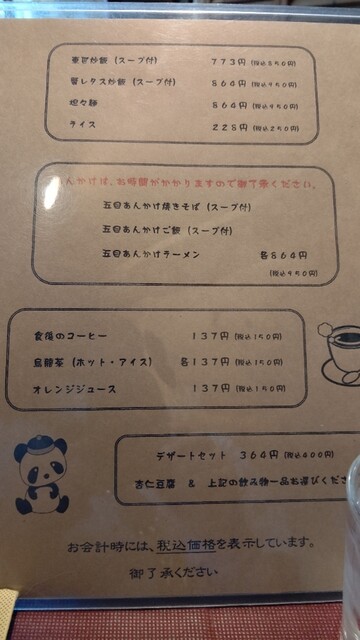 炒飯 (スープ付) 773円 (税込850円)
蟹レタス炒飯 (スープ付) 864円 (税込950円)
坦々麺 864円 (税込950円)
ライス 228円 (税込250円)
あんかけは、お時間がかかりますので御了承ください。
五目あんかけ焼きそば (スープ付)
五目あんかけご飯 (スープ付)
五目あんかけラーメン 各864円
(税込950円)
食後のコーヒー 137円 (税込150円)
烏龍茶 (ホット・アイス) 各137円 (税込150円)
オレンジジュース 137円 (税込150円)
デザートセット 364円 (税込400円)
杏仁豆腐 & 上記の飲み物一品お選びくださ
お会計時には、税込価格を表示しています。
御了承ください